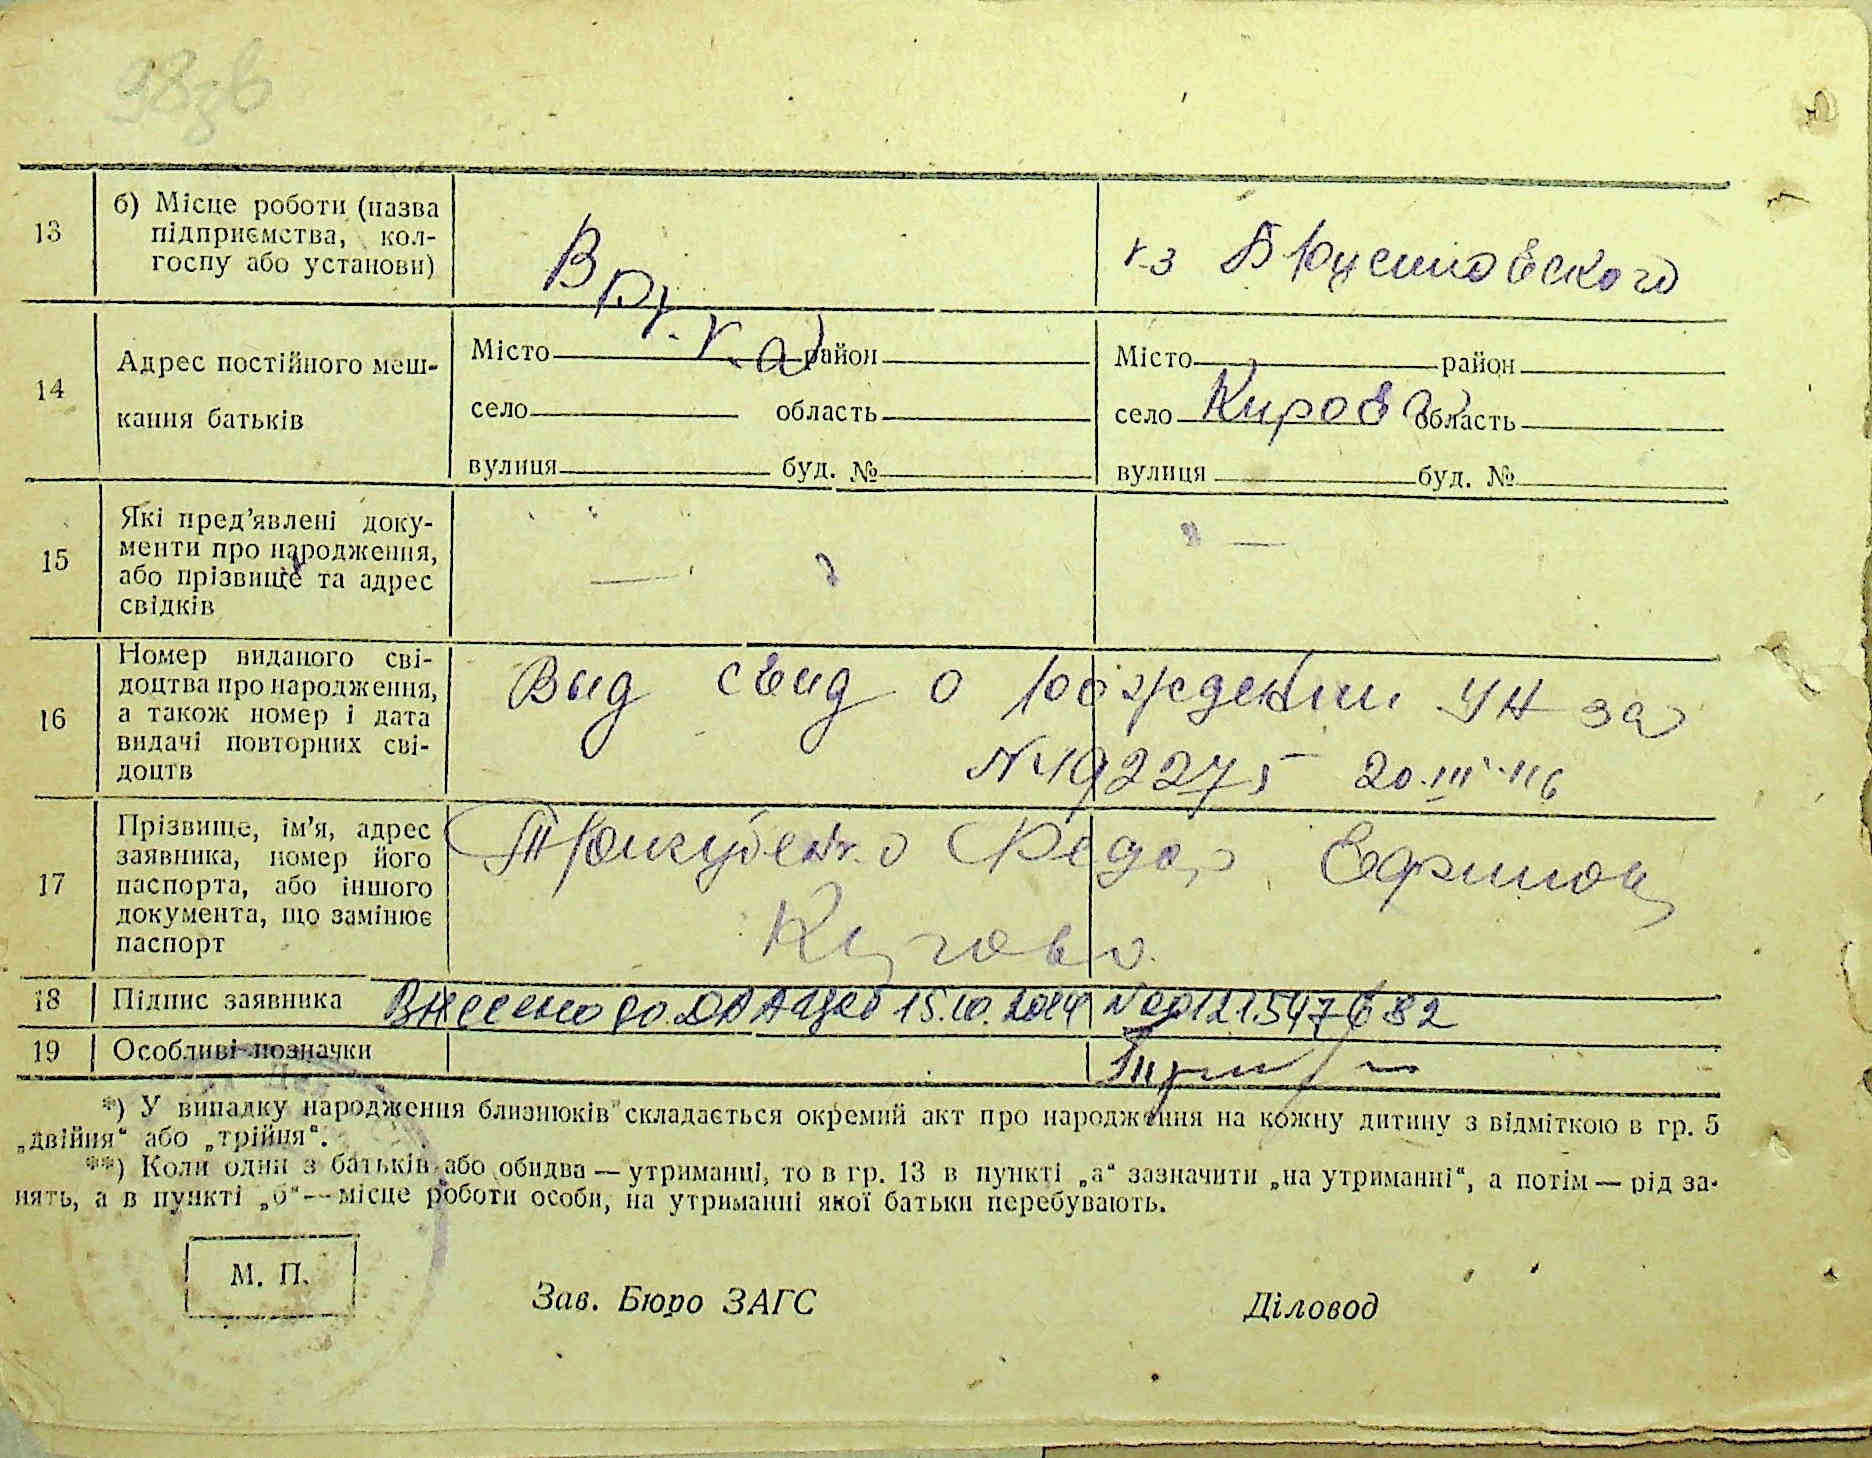 98зв
13
б) Місце роботи (назва
підприємства, кол-
госпу або установи)
В Р.К.К.А
к-з
14
Адрес постійного меш-
кання батьків
Місто район
село область
вулиця буд. №
Місто район
село Кирово область
вулиця буд. №
15
Які пред’явлені доку-
менти про народження,
або прізвище та адрес
свідків
—
—
16
Номер виданого сві-
доцтва про народження,
а також номер і дата
видачі повторних сві-
доцтв
Выд свид о рождении УН за
№ 192275 20.III.46
17
Прізвище, ім’я, адрес
заявника, номер його
паспорта, або іншого
документа, що замінює
паспорт
Федор
18
Підпис заявника
Внесено до ДРАЦСГ 15.10.2014
19
Особливі позначки
*) У випадку народження близнюків складається окремий акт про народження на кожну дитину з відміткою в гр. 5
„двійня“ або „трійня“.
**) Коли один з батьків або обидва — утриманці, то в гр. 13 в пункті „а“ зазначити „на утриманні“, а потім — рід за-
нять, а в пункті „б“ — місце роботи особи, на утриманні якої батьки перебувають.
М. П.
Зав. Бюро ЗАГС
Діловод